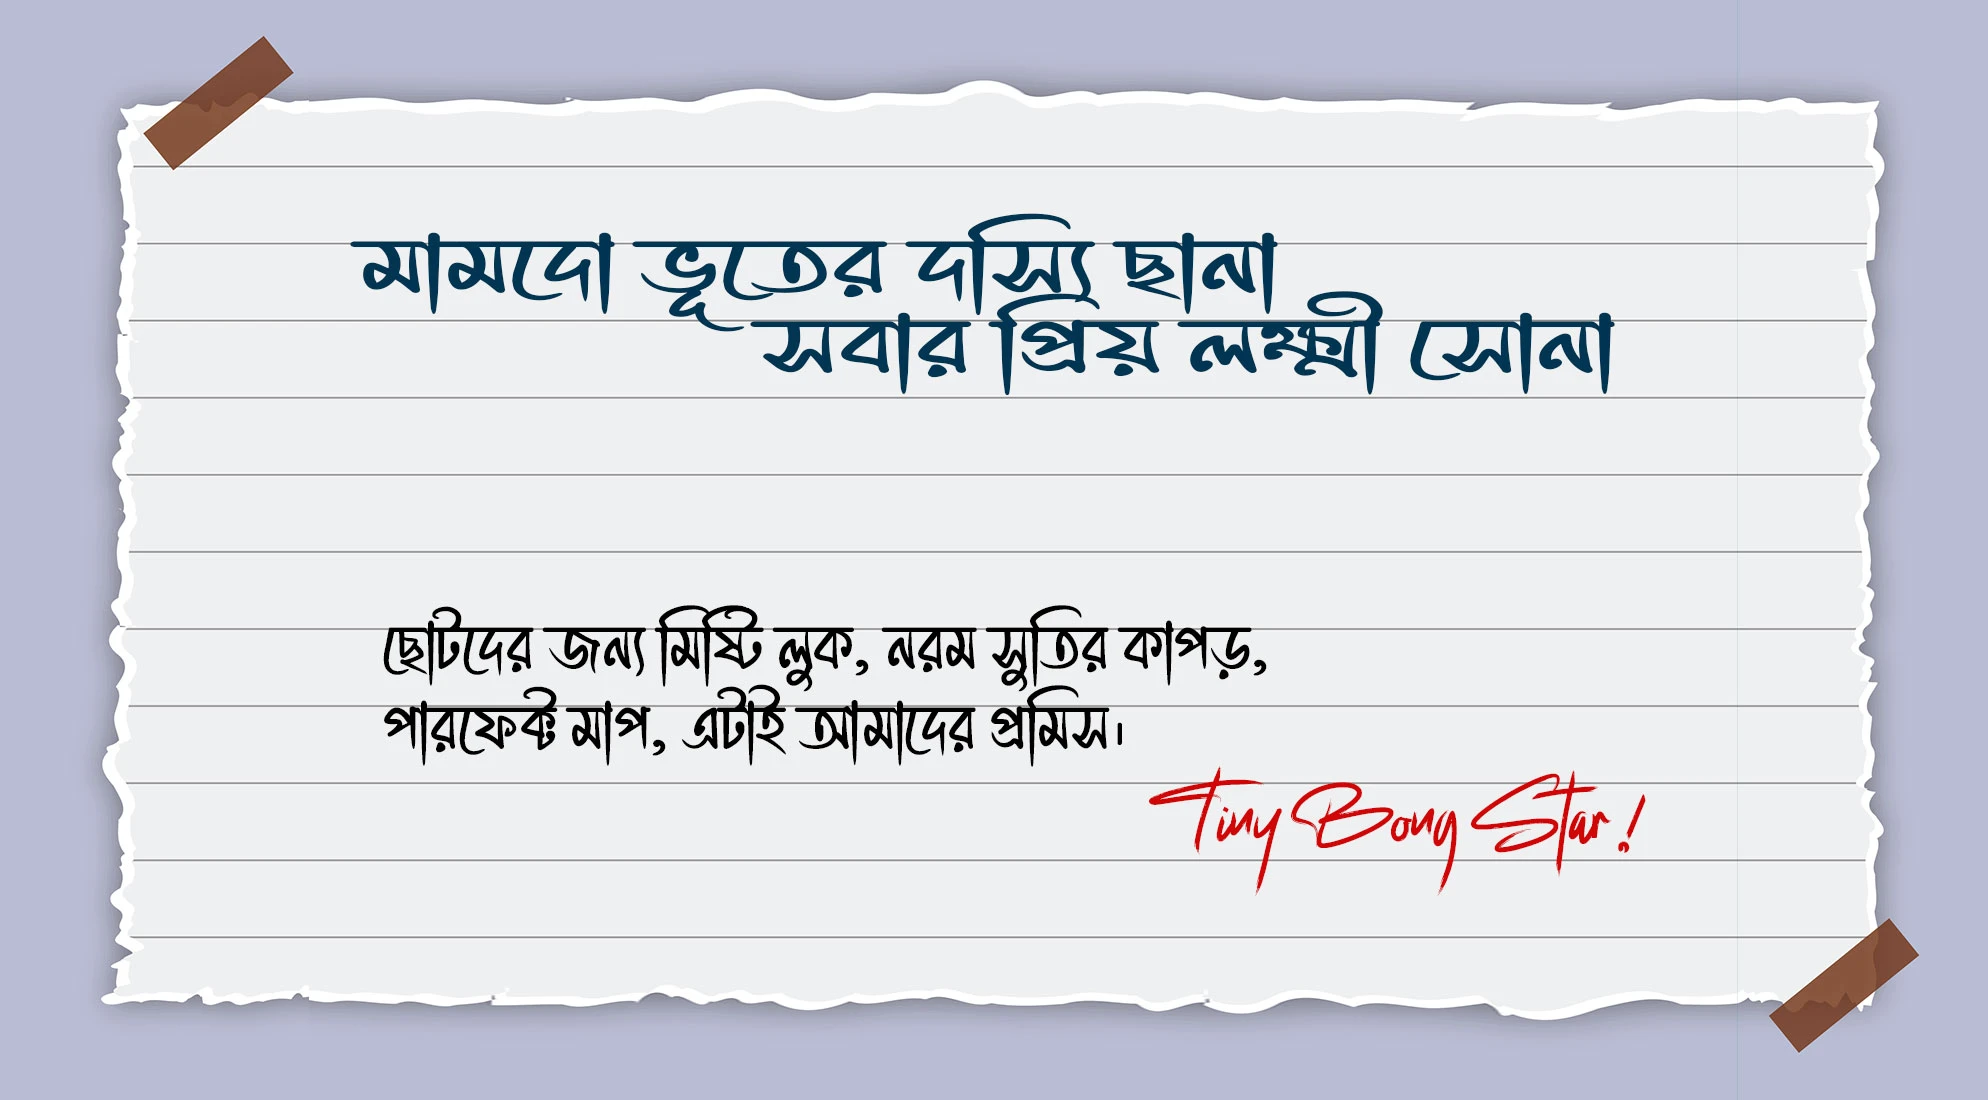 মামদো ভূতের দস্যি ছানা
সবার প্রিয় লক্ষ্মী সোনা
ছোটদের জন্য মিষ্টি লুক, নরম সুতির কাপড়,
পারফেক্ট মাপ, এটাই আমাদের প্রমিস।
Tiny Bong Star!